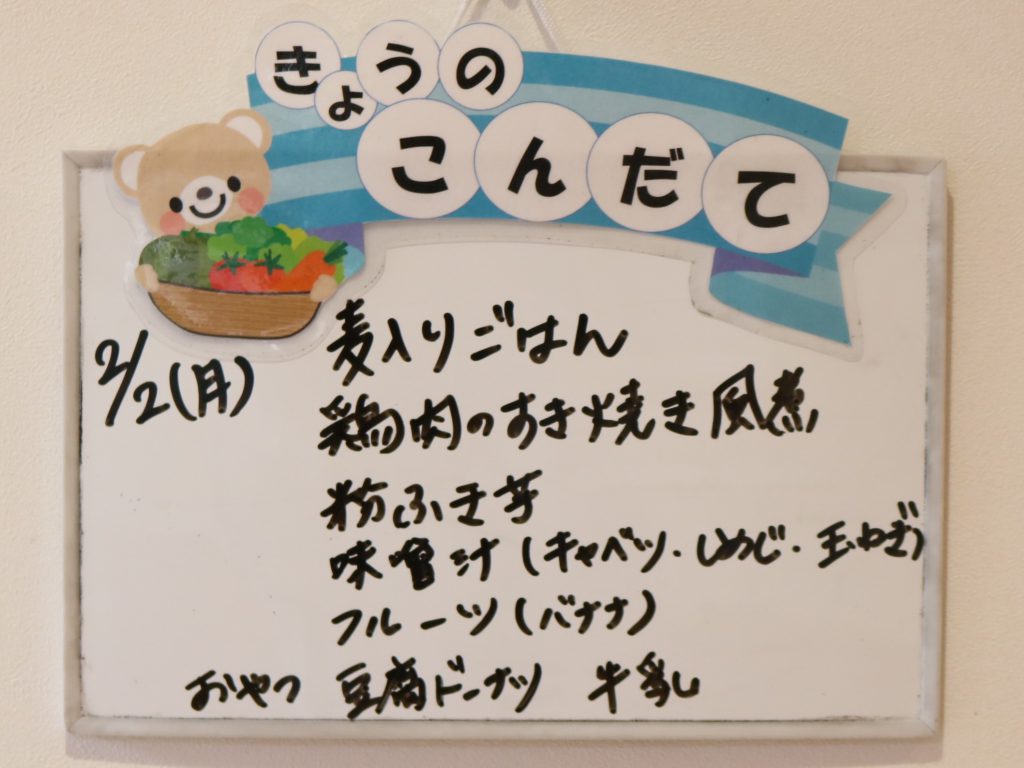 きょうの
こんだて
2/2(月)
麦入りごはん
鶏肉のすき焼き風煮
粉ふき芋
味噌汁(キャベツ・しめじ・玉ねぎ)
フルーツ(バナナ)
おやつ 豆腐ドーナツ 牛乳